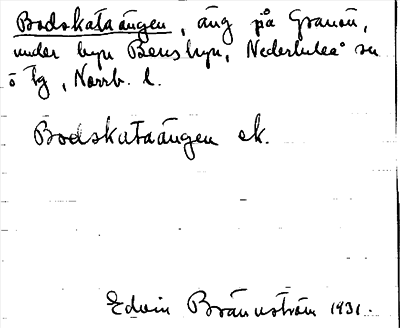 Bodskataängen, äng på Granön,
under byn Bensbyn, Nederluleå sn
o tg, Norrb. l.
Bodskataängen ek.
Edvin Brännström 1931.